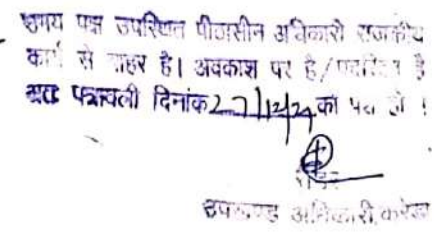 उभय पक्ष उपस्थित पीठासीन अधिकारी राजकीय
कार्य से बाहर है। अवकाश पर है/ है
अतः पत्रावली दिनांक 27/12/24 को पेश हो।
उपखण्ड अधिकारी, करेडा